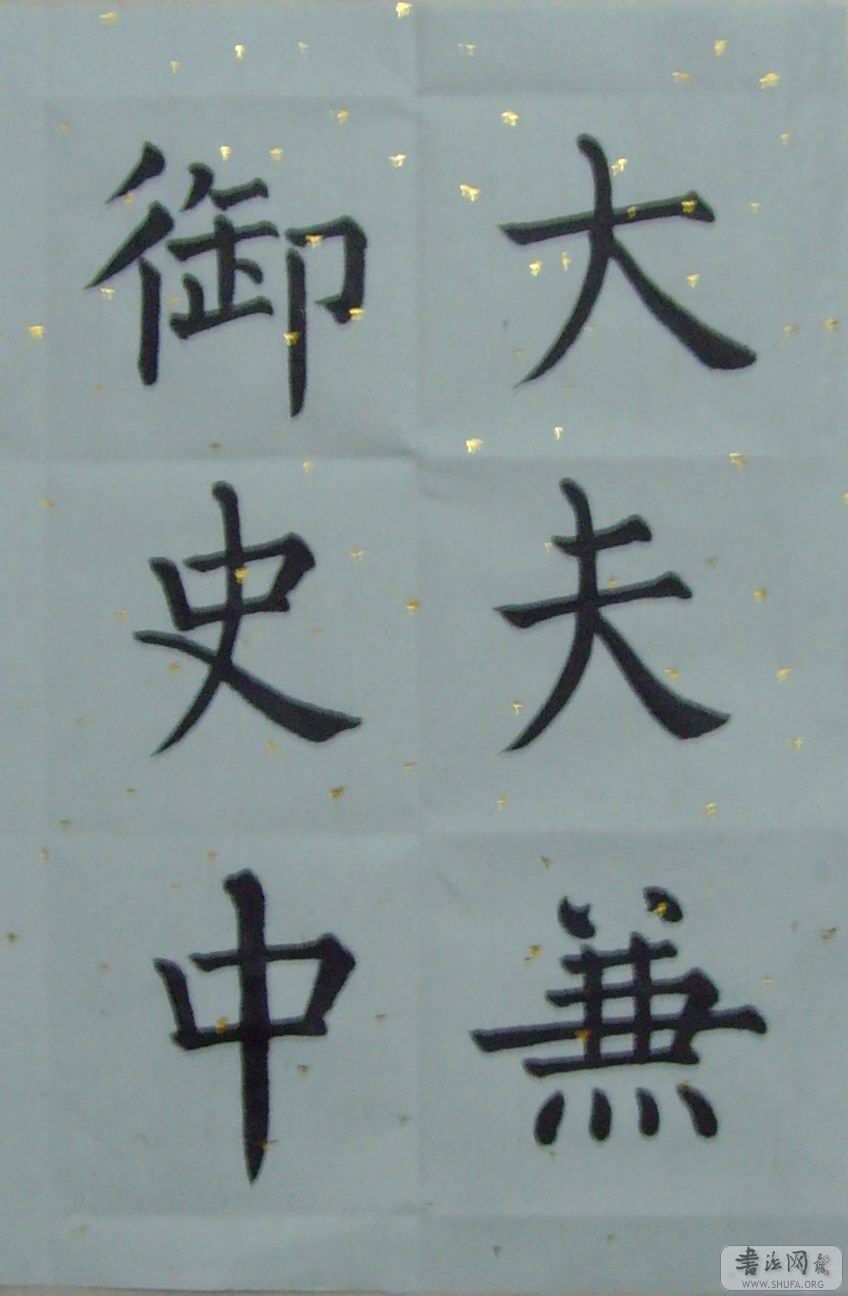 大夫兼
御史中
書法网
WWW.SHUFA.ORG